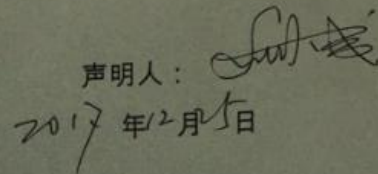 声明人：
2017年12月25日